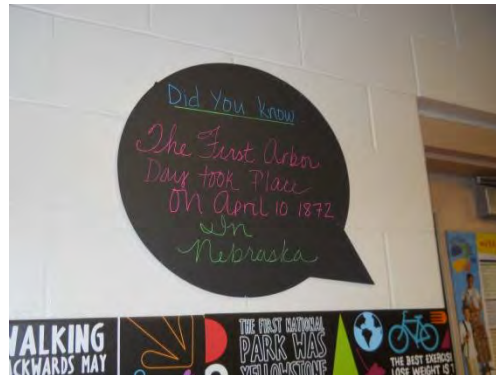 Did You Know
The First Arbor
Day took Place
On April 10 1872
In
Nebraska
WALKING
BACKWARDS MAY
THE FIRST NATIONAL
PARK WAS
YELLOWSTONE
THE BEST EXERCISE
LOSE WEIGHT IS